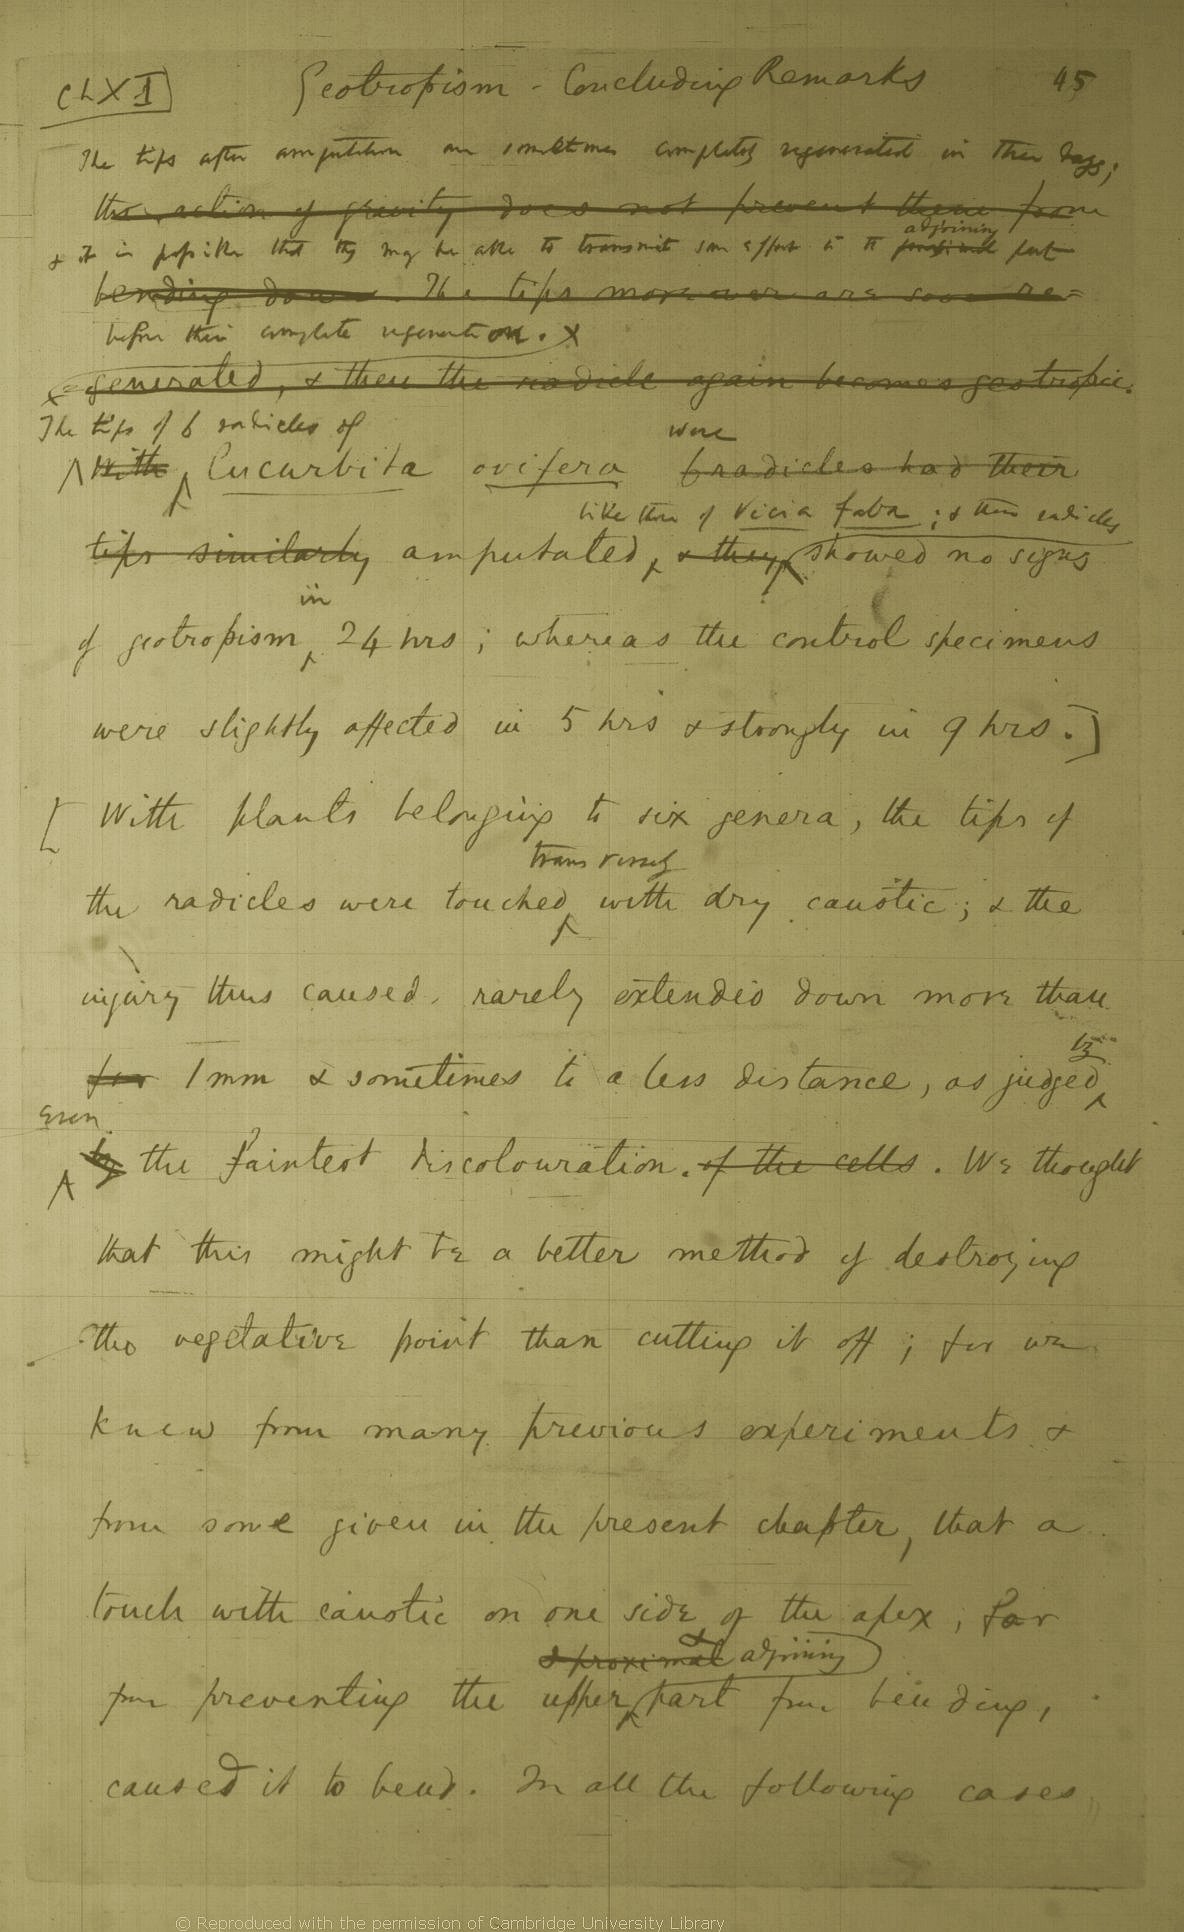 Ch XI] Geotropism - Concluding Remarks 45
The tips after amputation are sometimes completely regenerated in three days;
the action of gravity does not prevent them from
& it is possible that they may be able to transmit some effect to the adjoining part
bending down. The tips moreover are soon re=
before their complete regeneration. X
X =generated, & then the radicle again becomes geotropic.
The tips of 6 radicles of were
With Cucurbita ovifera 6 radicles had their
like those of Vicia faba; & these radicles
tips similarly amputated, & they showed no signs
in
of geotropism 24 hrs; whereas the control specimens
were slightly affected in 5 hrs & strongly in 9 hrs.]
[With plants belonging to six genera, the tips of
transversely
the radicles were touched with dry caustic; & the
injury thus caused, rarely extended down more than
by
for 1 mm & sometimes to a less distance, as judged
even
by the faintest discolouration. of the cells. We thought
that this might be a better method of destroying
the vegetative point than cutting it off; for we
knew from many previous experiments &
from some given in the present chapter, that a
touch with caustic on one side of the apex, far
& proximal & adjoining
from preventing the upper part from bending,
caused it to bend. In all the following cases
© Reproduced with the permission of Cambridge University Library